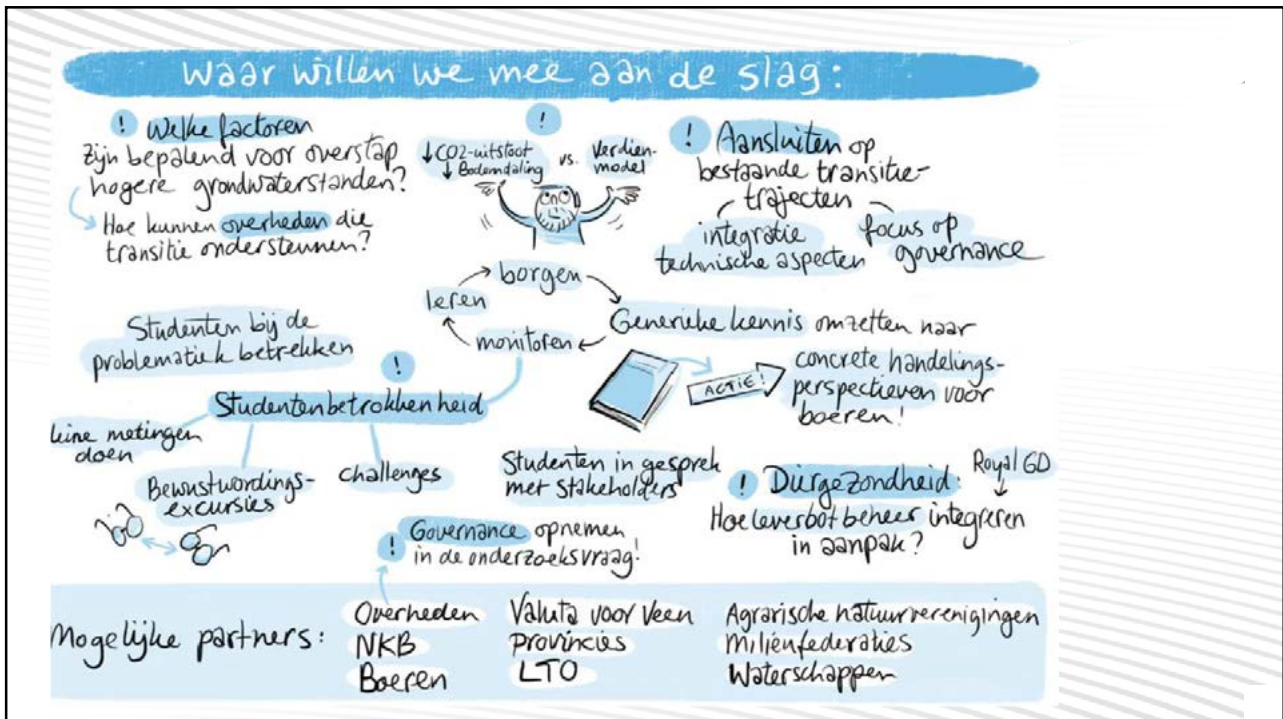 Waar willen we mee aan de slag:
! Welke factoren
zijn bepalend voor overstap
hogere grondwaterstanden?
Hoe kunnen overheden die
transitie ondersteunen?
!
↓CO2-uitstoot
↓Bodemdaling
vs.
Verdien-
model
! Aansluiten op
bestaande transitie-
trajecten
integratie
technische aspecten
focus op
governance
borgen
leren
monitoren
Generieke kennis omzetten naar
ACTIE!
concrete handelings-
perspectieven voor
boeren!
Studenten bij de
problematiek betrekken
!
Studentenbetrokkenheid
leine metingen
doen
Bewustwordings-
excursies
challenges
Studenten in gesprek
met stakeholders
! Governance opnemen
in de onderzoeksvraag!
! Diergezondheid:
Royal GD
Hoe leverbot beheer integreren
in aanpak?
Mogelijke partners:
Overheden
NKB
Boeren
Valuta voor Veen
Provincies
LTO
Agrarische natuurverenigingen
Miliéufederaties
Waterschappen